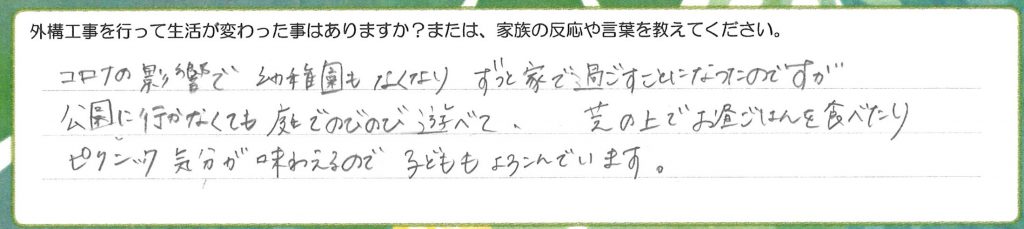 外構工事を行って生活が変わった事はありますか？または、家族の反応や言葉を教えてください。
コロナの影響で 幼稚園もなくなり ずっと家で過ごすことになったのですが
公園に行かなくても 庭でのびのび遊べて、 芝の上でお昼ごはんを食べたり
ピクニック気分が味わえるので 子どももよろこんでいます。